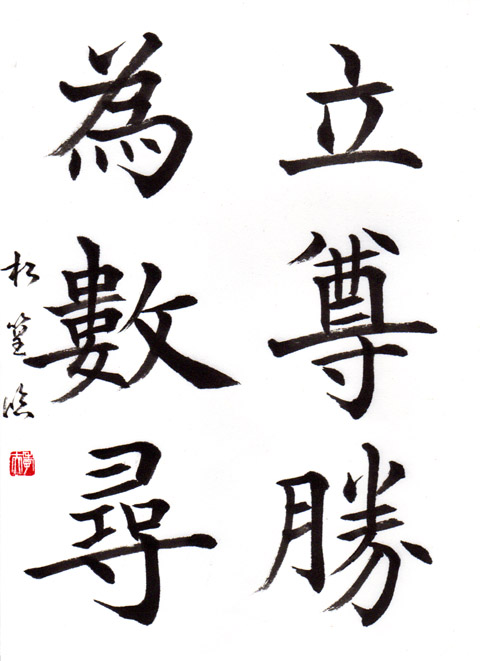 立尊勝
為數尋
松篁臨